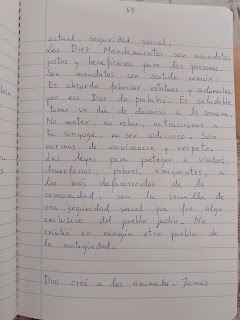 69
actual seguridad social.
Los Diez Mandamientos son mandatos
justos y beneficiosos para las personas.
Son mandatos con sentido común:
Es absurdo fabricar estatuas y adorarlas
por eso Dios lo prohíbe. Es saludable
tener un día de descanso a la semana.
No matar, no robar, no traicionar a
tu cónyuge, no ser codicioso. Son
normas de convivencia y respeto.
Las leyes para proteger a viudas,
huérfanos, pobres, emigrantes, a
los más desfavorecidos de la
comunidad, son la semilla de
una seguridad social que fue algo
exclusivo del pueblo judío. No
existió en ningún otro pueblo de
la antigüedad.
Dios creó a los animales. Jamás